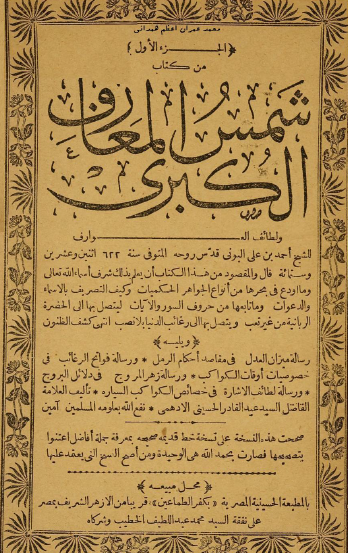 محمد عمران اعظم همدانی
﴿الجزء الأول﴾
من كتاب
شمس المعارف
الكبرى
ولطائف العــــــوارف
للشيخ أحمد بن على البونى قدس روحه المتوفى سنة ٦٢٢ اثنتين وعشرين
وستمائة قال والمقصود من هذا الكتاب أن يعلم بذلك شرف أسماء الله تعالى
وما أودع فى بحرها من أنواع الجواهر الحكميات وكيف التصريف بالاسماء
والدعوات وما تابعها من حروف السور والآيات ليتصل بها الى الحضرة
الربانية من غير تعب ويتصل بها الى رغائب الدنيا بلا نصب انتهى كشف الظنون
﴿ويليه﴾
رسالة ميزان العدل فى مقاصد أحكام الرمل * ورسالة فواتح الرغائب فى
خصوصيات أوقات الكواكب * ورسالة زهر المروج فى دلائل البروج
* ورسالة لطائف الاشارة فى خصائص الكواكب السياره * تأليف العلامة
الفاضل السيد عبد القادر الحسينى الادهمى * نفع الله بعلومه المسلمين آمين
صححت هذه النسخة على نسخة خط قديمة صحيحه بمعرفة جملة أفاضل اعتنوا
بتصحيحها فصارت بحمد الله هى الوحيدة ومن أصح النسخ التى يعتمد عليها
﴿محل مبيعه﴾
بالمطبعة الحسينية المصرية ﴿بكفر الطماعين﴾ قريبا من الازهر الشريف بمصر
على نفقة السيد محمد عبد اللطيف الخطيب وشركاه